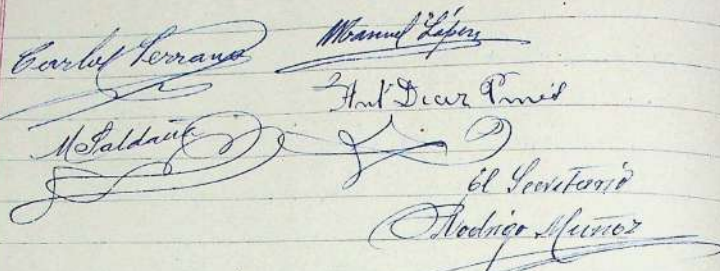 Carlos Serrano
Manuel López
Antº Diaz Pinés
M Saldaña
El Secretario
Rodrigo Muñoz